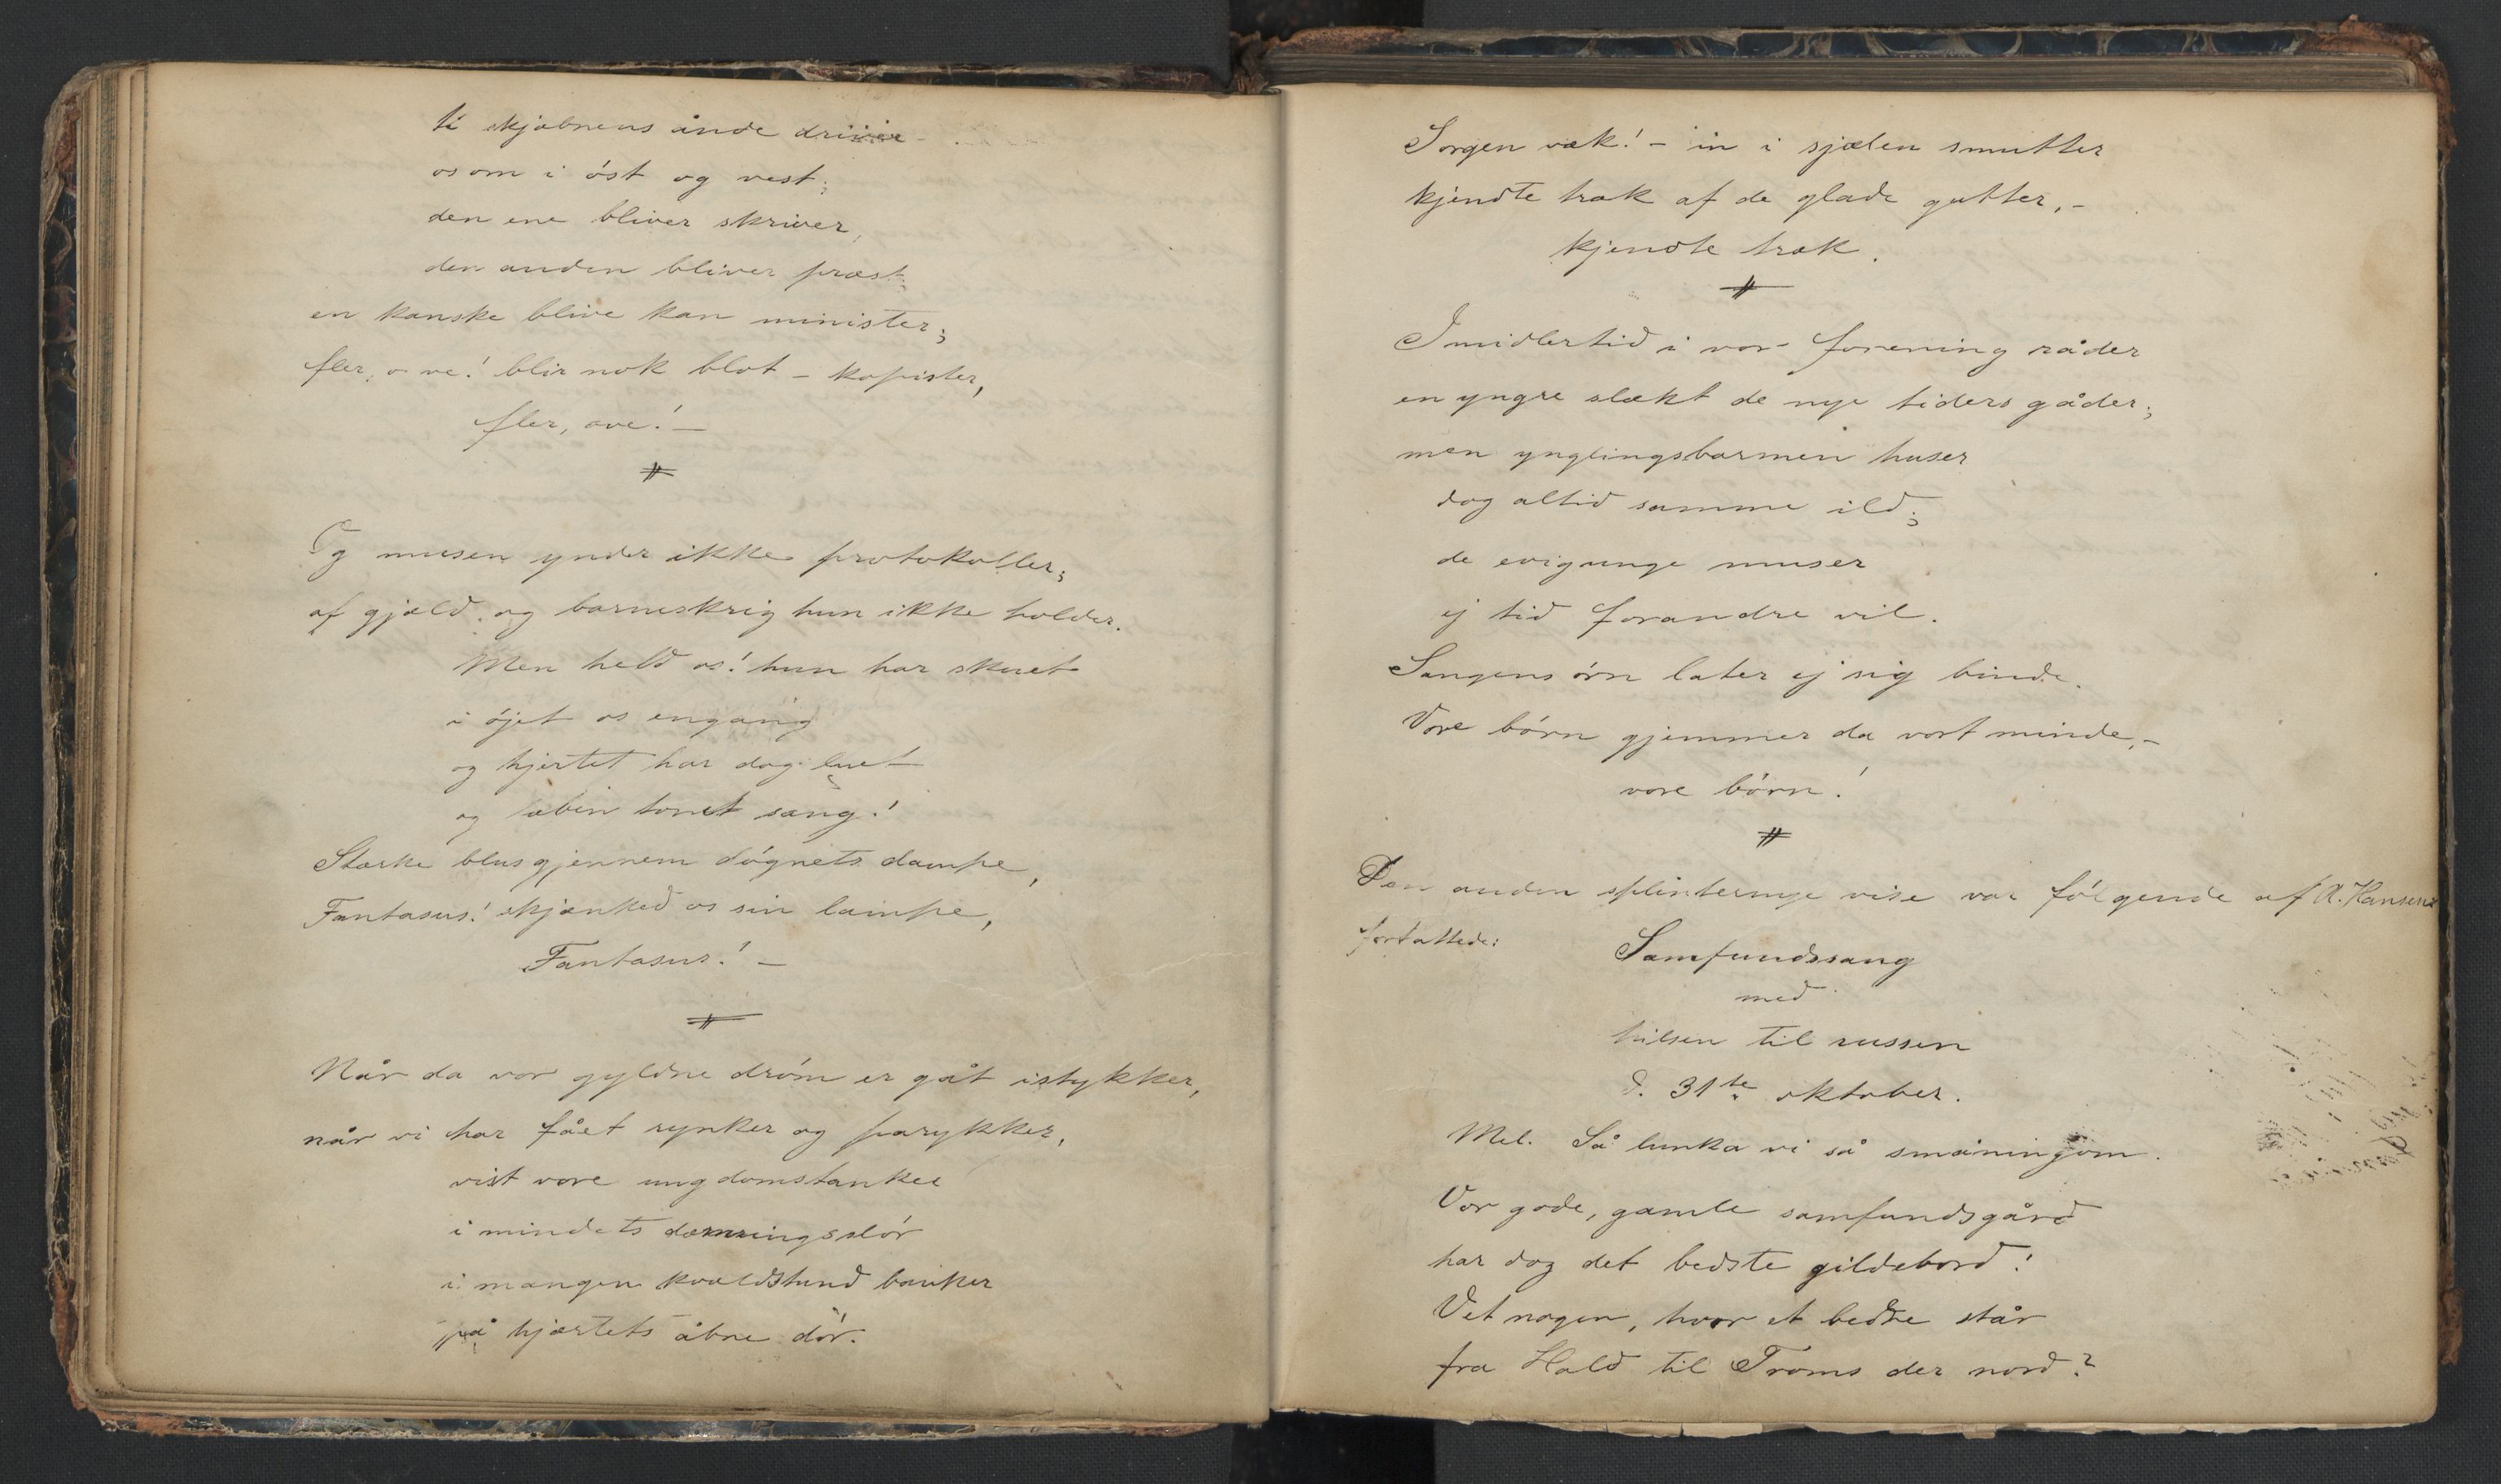 ti skjæbnens ånde driver
os om i øst og vest;
den ene bliver skriver,
den anden bliver præst;
en kanske blive kan minister;
fler, o ve! blir nok blot – kopister,
fler, ove! –
Og musen ynder ikke protokoller;
af gjæld og barneskrig hun ikke holder.
Men held os! hun har skuet
i øjet os engang
og hjertet har dog luet
og læben tonet sang!
Stærke blus gjennem døgnets dampe,
Fantasus! skjænked os sin lampe,
Fantasus! –
Når da vor gyldne drøm er gåt istykker,
når vi har fået rynker og parykker,
vist vore ungdomstanker
i mindets dæmringsslør
i mangen kvældstund banker
på hjærtets åbne dør.
Sorgen væk! – in i sjælen smutter
kjendte træk af de glade gutter, –
kjendte træk.
Imidlertid i vor forening råder
en yngre slækt de nye tiders gåder;
men ynglingsbarmen huser
dog altid samme ild;
de evigunge muser
ej tid forandre vil.
Sangens ørn later ej sig binde.
Vore børn gjemmer da vort minde, –
vore børn!
Den anden splinternye vise var følgende af A. Hansen
forfattede:
Samfundssang
med
hilsen til russen
d. 31te oktober.
Mel. Så lunka vi så småningom.
Vor gode, gamle samfundsgård
har dog det bedste gildebord!
Vet nogen, hvor et bedre står
fra Hald til Troms der nord?